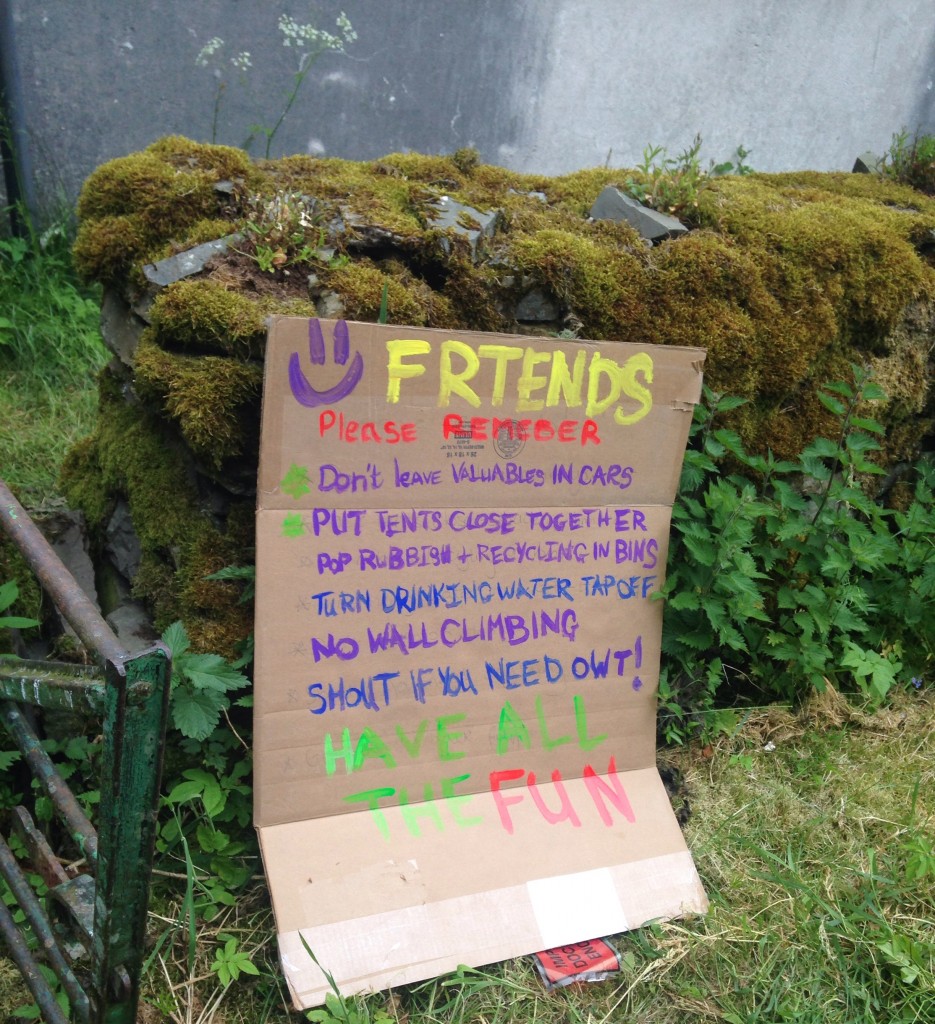 FRIENDS
Please REMEBER
Don't leave VALUABLES IN CARS
PUT TENTS CLOSE TOGETHER
POP RUBBISH + RECYCLING IN BINS
TURN DRINKING WATER TAP OFF
NO WALL CLIMBING
SHOUT IF YOU NEED OWT!
HAVE ALL
THE FUN